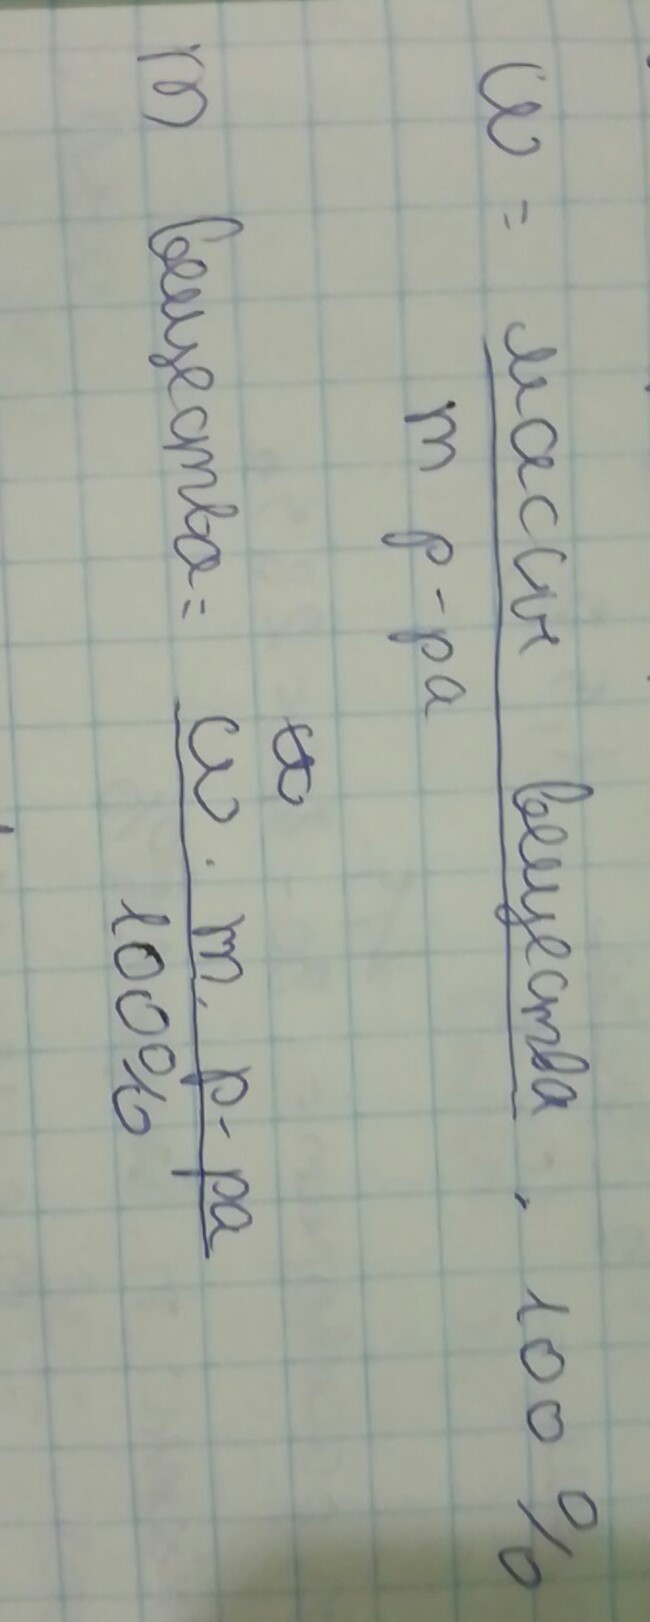 ω = массы вещества · 100%
m р-ра
m вещества = ω · m, р-ра
100%